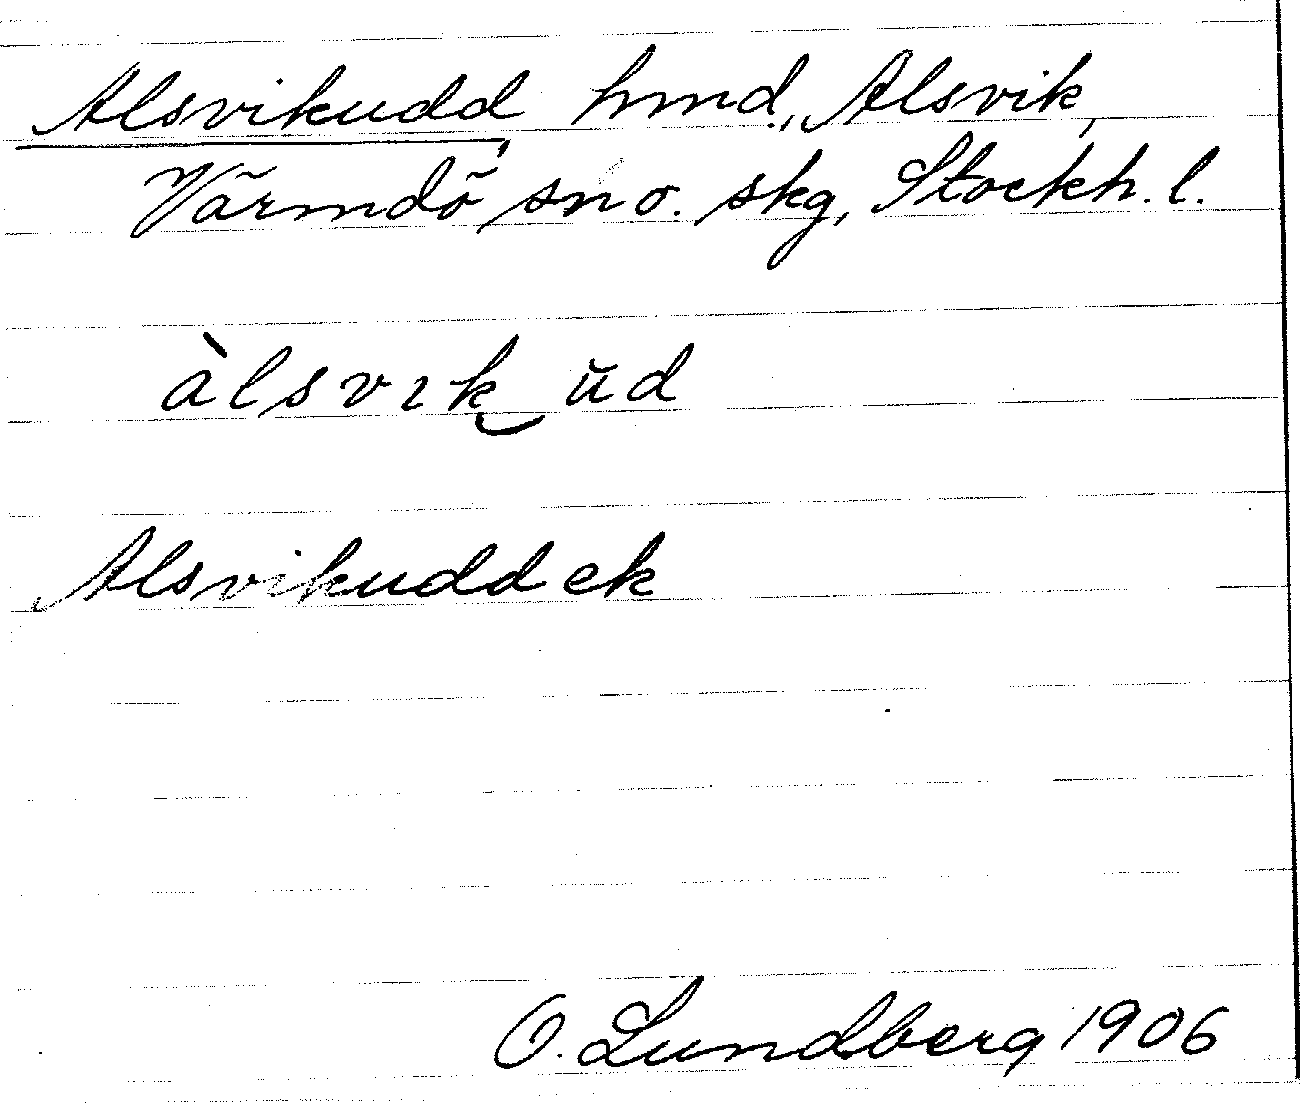 Alsvikudd hmd., Alsvik,
Värmdö sn o. skg, Stockh. l.
àlsvık‿ŭd
Alsvikudd ek
O. Lundberg 1906